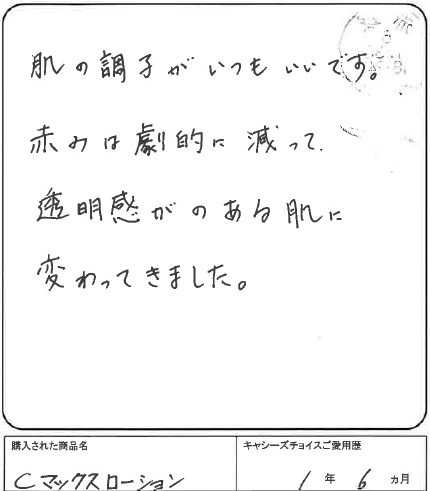 肌の調子がいつもいいです。
赤みは劇的に減って、
透明感がのある肌に
変わってきました。
購入された商品名
Cマックスローション
キャシーズチョイスご愛用歴
1年6ヵ月